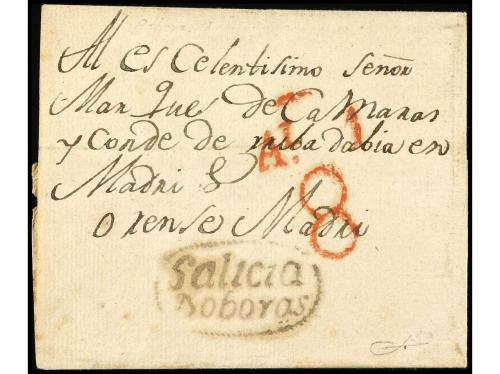 Al es Celentisimo señor
Marques de Camaras
y Conde de riba dabia en
Madri &
Orense Madri
A.
8
Galicia
Boboras